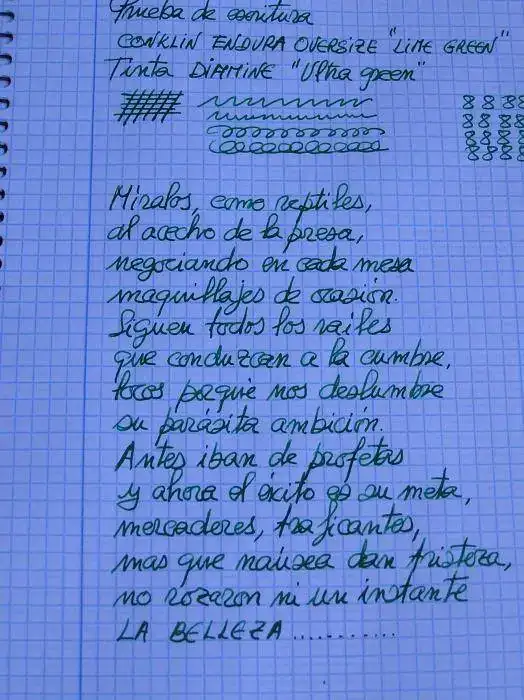 Prueba de escritura
CONKLIN ENDURA OVERSIZE "LIME GREEN"
Tinta DIAMINE "Ultra green"
8 8 8 8
8 8 8 8
8 8 8 8
8 8 8 8
Míralos, como reptiles,
al acecho de la presa,
negociando en cada mesa
maquillajes de ocasión.
Siguen todos los raíles
que conduzcan a la cumbre,
locos porque nos deslumbre
su parásita ambición.
Antes iban de profetas
y ahora el éxito es su meta,
mercaderes, traficantes,
mas que naúsea dan tristeza,
no rozaron ni un instante
LA BELLEZA............